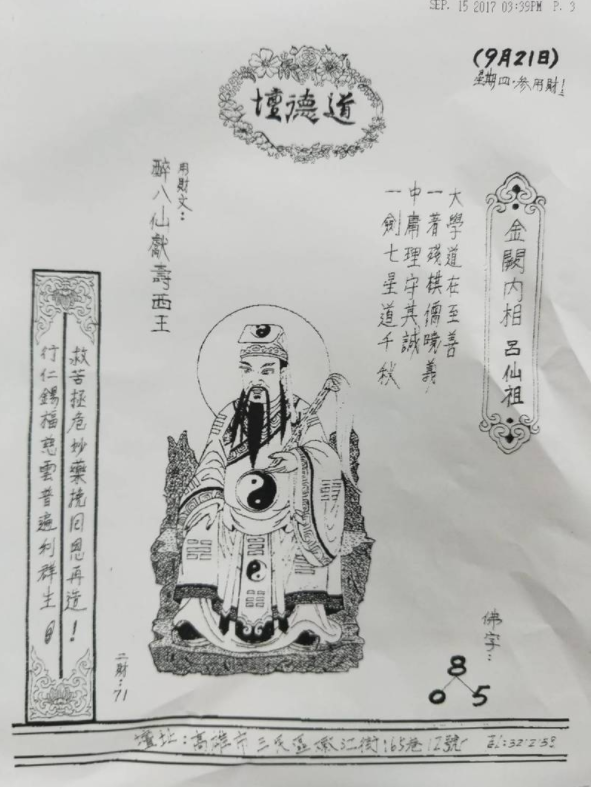 SEP. 15 2017 03:39PM P. 3
(9月21日)
星期四·參用財!
道德壇
金闕內相 呂仙祖
大學道在至善
一著殘棋儒曉義
中庸理守其誠
一劍七星道千秋
用財文:
醉八仙獻壽西王
救苦拯危抄藥挽回恩再造!
行仁錫福慈雲普遍利群生
二財:71
佛字:
8
0 5
壇址:高雄市三民區 江街165巷12號